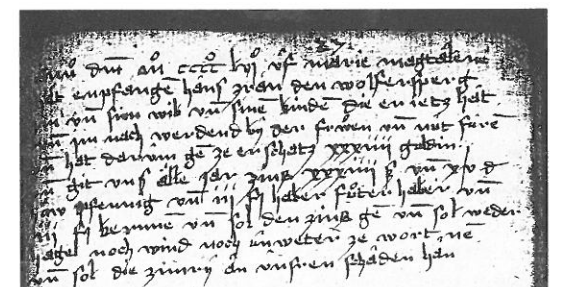 dm̄ aō ccccͦ lvjͦ vf marie magtalene
enpfangē hans zran den wolfersperg
vn̄ sinen wib vn̄ sinē kinden die er ietz hat
im nach werdend by der frowen vn̄ nit ferē
hat darum gē ze erschatz xxxiiii guldin
git vns alle jar zins xxxiiii ß vn̄ xv d
pfennig vn̄ iii fl haber foter haber vn̄
iii fl kernnē vn̄ sol den zins gē vn̄ sol weder
hagel noch wind noch vnweter ze wort nē
vn̄ sol die zimry an vnsren schaden han